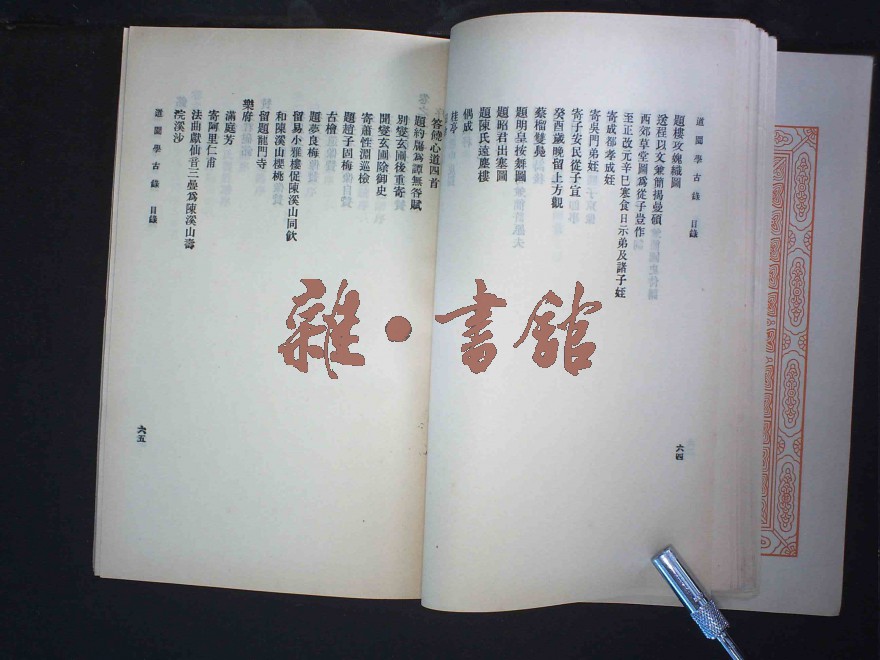 道園學古錄 目錄
題樓攻媿織圖
送程以文兼簡揭曼碩
西郊草堂圖爲從子豈作
至正改元辛巳寒食日示弟及諸子姪
寄成都孝成姪
寄吳門弟姪
寄子安民從子宣
癸酉歲晚留上方觀
蔡榴雙鳧
題明皇按舞圖
題昭君出塞圖
題陳氏遠塵樓
偶成
桂亭
六四
答饒心道四首
題約牖爲譚無咎賦
別燮玄圃後重寄
聞燮玄圃除御史
寄蕭性淵巡檢
題趙子固梅
古檜
題夢良梅
留易小雅樓促陳溪山同飲
和陳溪山櫻桃
留題龍門寺
樂府
滿庭芳
寄阿里仁甫
法曲獻仙音三疊爲陳溪山壽
浣溪沙
道園學古錄 目錄
六五
雜·書館